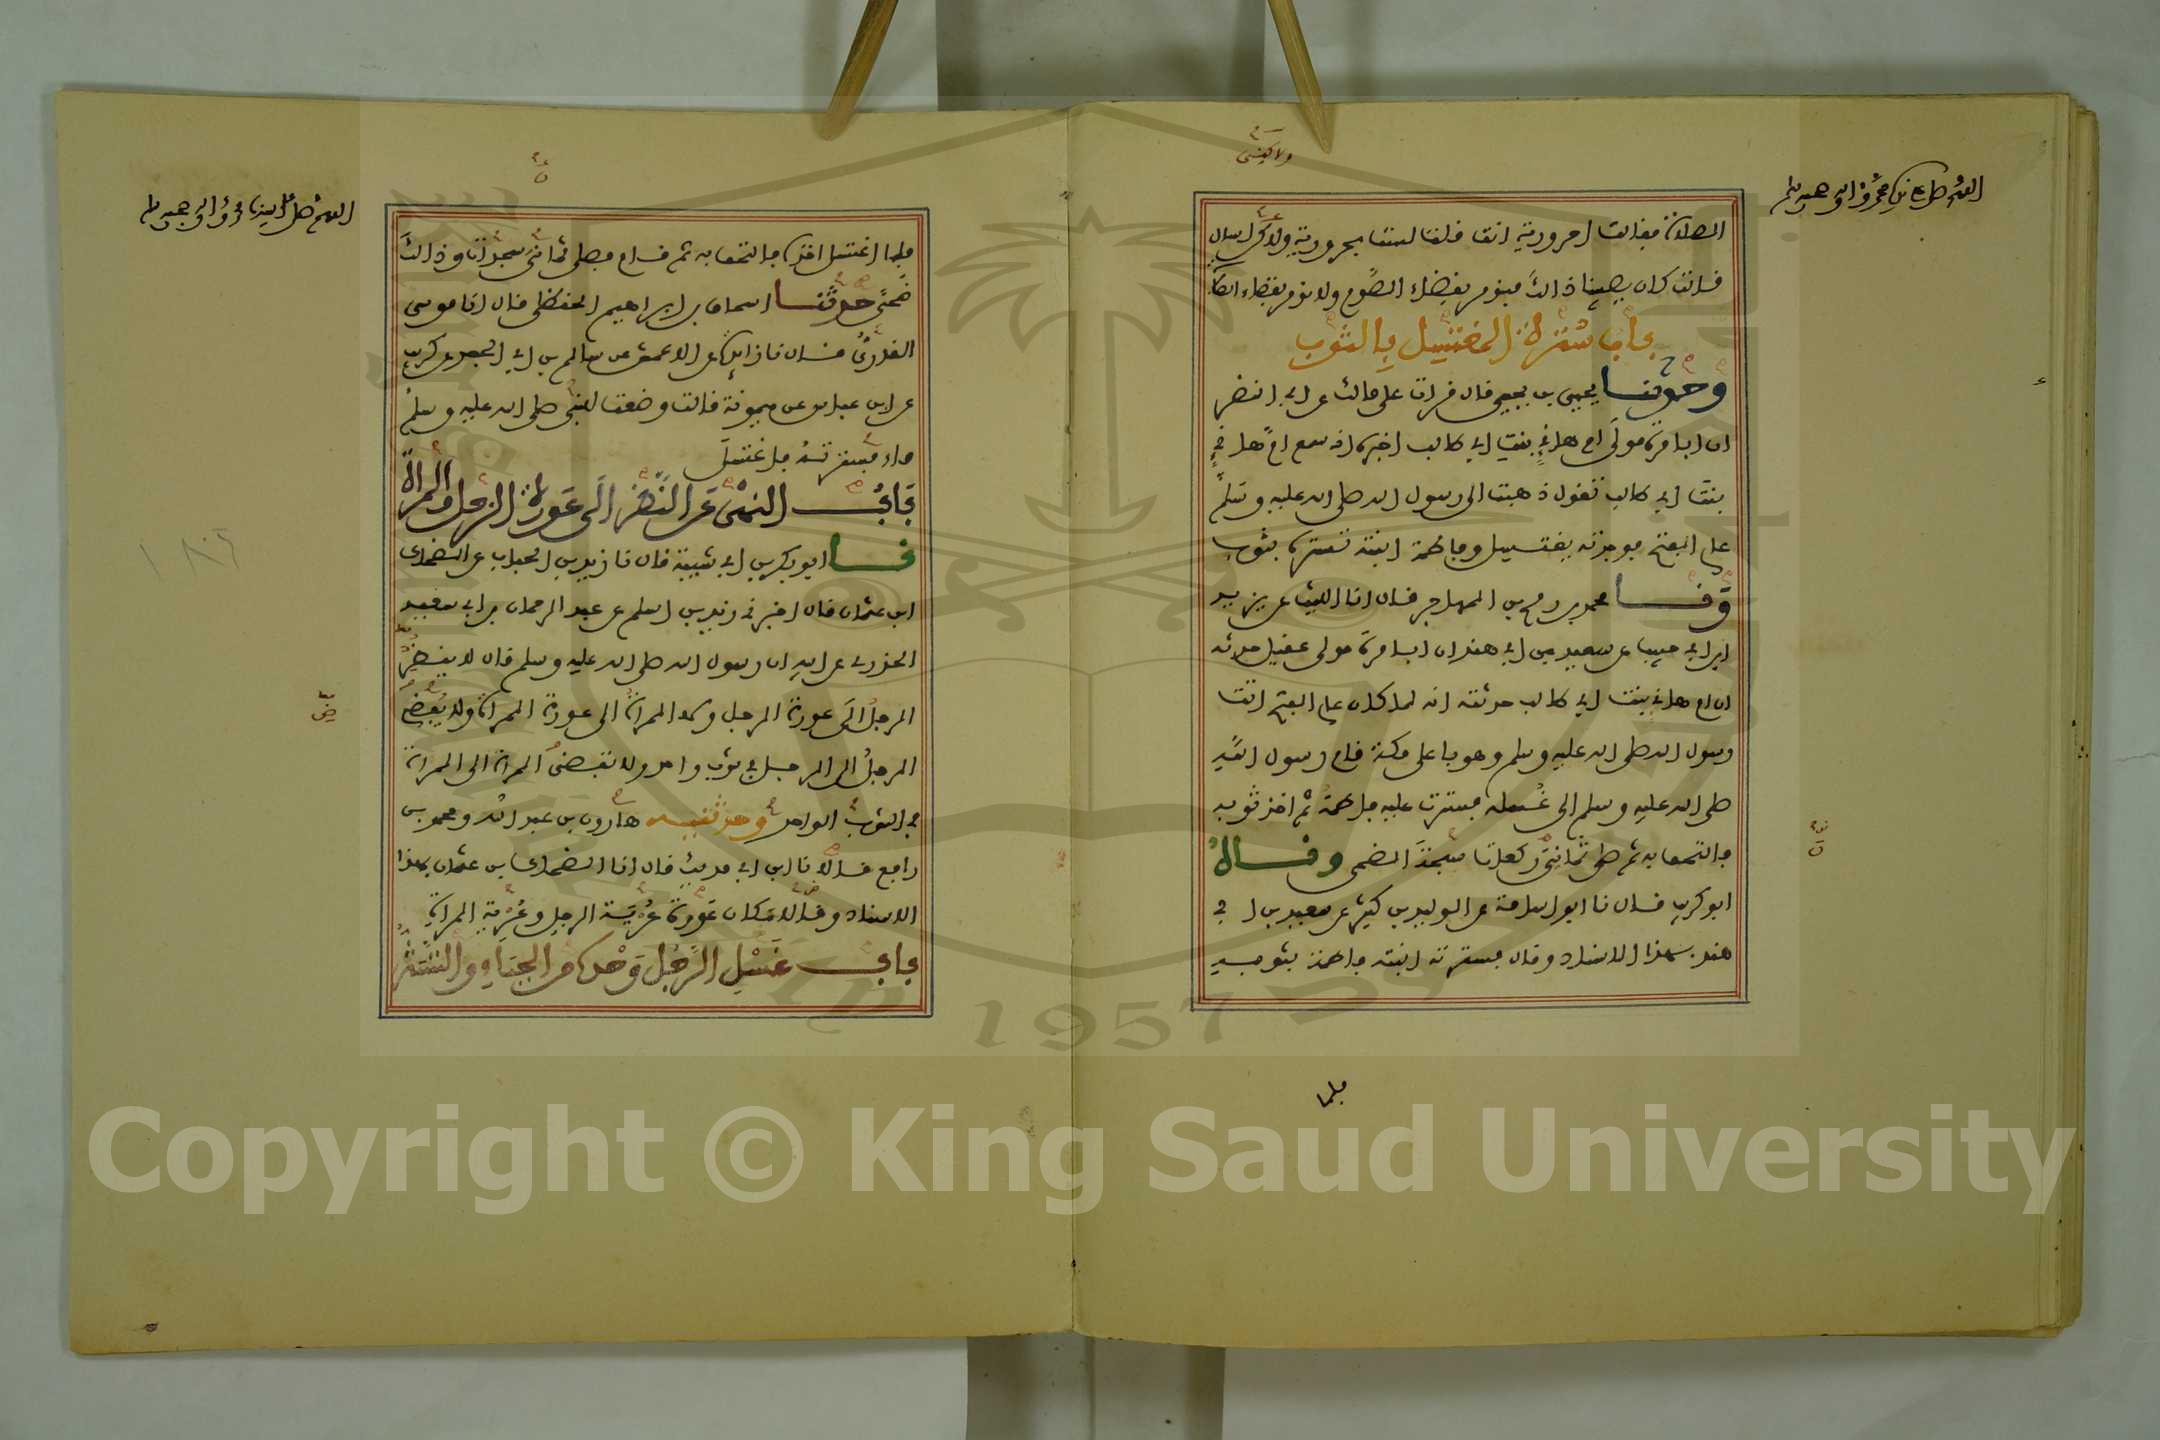 ولاكنى
اللهم صل على سيدنا محمد وءاله وصحبه وسلم
الصلاة فقالت احرورية انت قلت لست بحرورية ولاكنى اسال
قالت كان يصيبنا ذالك فنومر بقضاء الصوم ولا نومر بقضاء الصلاة
باب سترة المغتسل بالثوب
وحدثنا يحيى بن يحيى قال قرات على مالك عن ابى النضر
ان ابا مرة مولى ام هانئ بنت ابى طالب اخبره انه سمع ام هانئ
بنت ابى طالب تقول ذهبت الى رسول الله صلى الله عليه وسلم
عام الفتح فوجدته يغتسل وفاطمة ابنته تستره بثوب
وثنا محمد بن رمح بن المهاجر قال انا الليث عن يزيد
ابن ابى حبيب عن سعيد بن ابى هند ان ابا مرة مولى عقيل حدثه
ان ام هانئ بنت ابى طالب حدثته انه لما كان عام الفتح اتت
رسول الله صلى الله عليه وسلم وهو باعلى مكة قام رسول الله
صلى الله عليه وسلم الى غسله فسترت عليه فاطمة ثم اخذ ثوبه
فالتحف به ثم صلى ثمانى ركعات سبحة الضحى وقال
ابو كريب قال نا ابو اسامة عن الوليد بن كثير عن سعيد بن ابى
هند بهذا الاسناد وقال فسترته ابنته فاطمة بثوبه
فلما
اللهم صل على سيدنا محمد وءاله وصحبه وسلم
فلما اغتسل اخذه فالتحف به ثم قام فصلى ثمانى سجدات وذالك
ضحى حدثنا اسحاق بن ابراهيم الحنظلى قال انا موسى
القارئ قال نا زائدة عن الاعمش عن سالم بن ابى الجعد عن كريب
عن ابن عباس عن ميمونة قالت وضعت للنبى صلى الله عليه وسلم
ماء فسترته فاغتسل
باب النهى عن النظر الى عورة الرجل والمراة
ثنا ابو بكر بن ابى شيبة قال نا زيد بن الحباب عن الضحاك
ابن عثمان قال اخبرنى زيد بن اسلم عن عبد الرحمان بن ابى سعيد
الخدرى عن ابيه ان رسول الله صلى الله عليه وسلم قال لا ينظر
الرجل الى عورة الرجل ولا المراة الى عورة المراة ولا يفضى
الرجل الى الرجل فى ثوب واحد ولا تفضى المراة الى المراة
فى الثوب الواحد وحدثنيه هارون بن عبد الله ومحمد بن
رافع قالا نا ابن ابى فديك قال انا الضحاك بن عثمان بهذا
الاسناد وقالا مكان عورة عرية الرجل وعرية المراة
باب غسل الرجل وحده من الجنابة والتستر
١٨٢
Copyright © King Saud University
1957